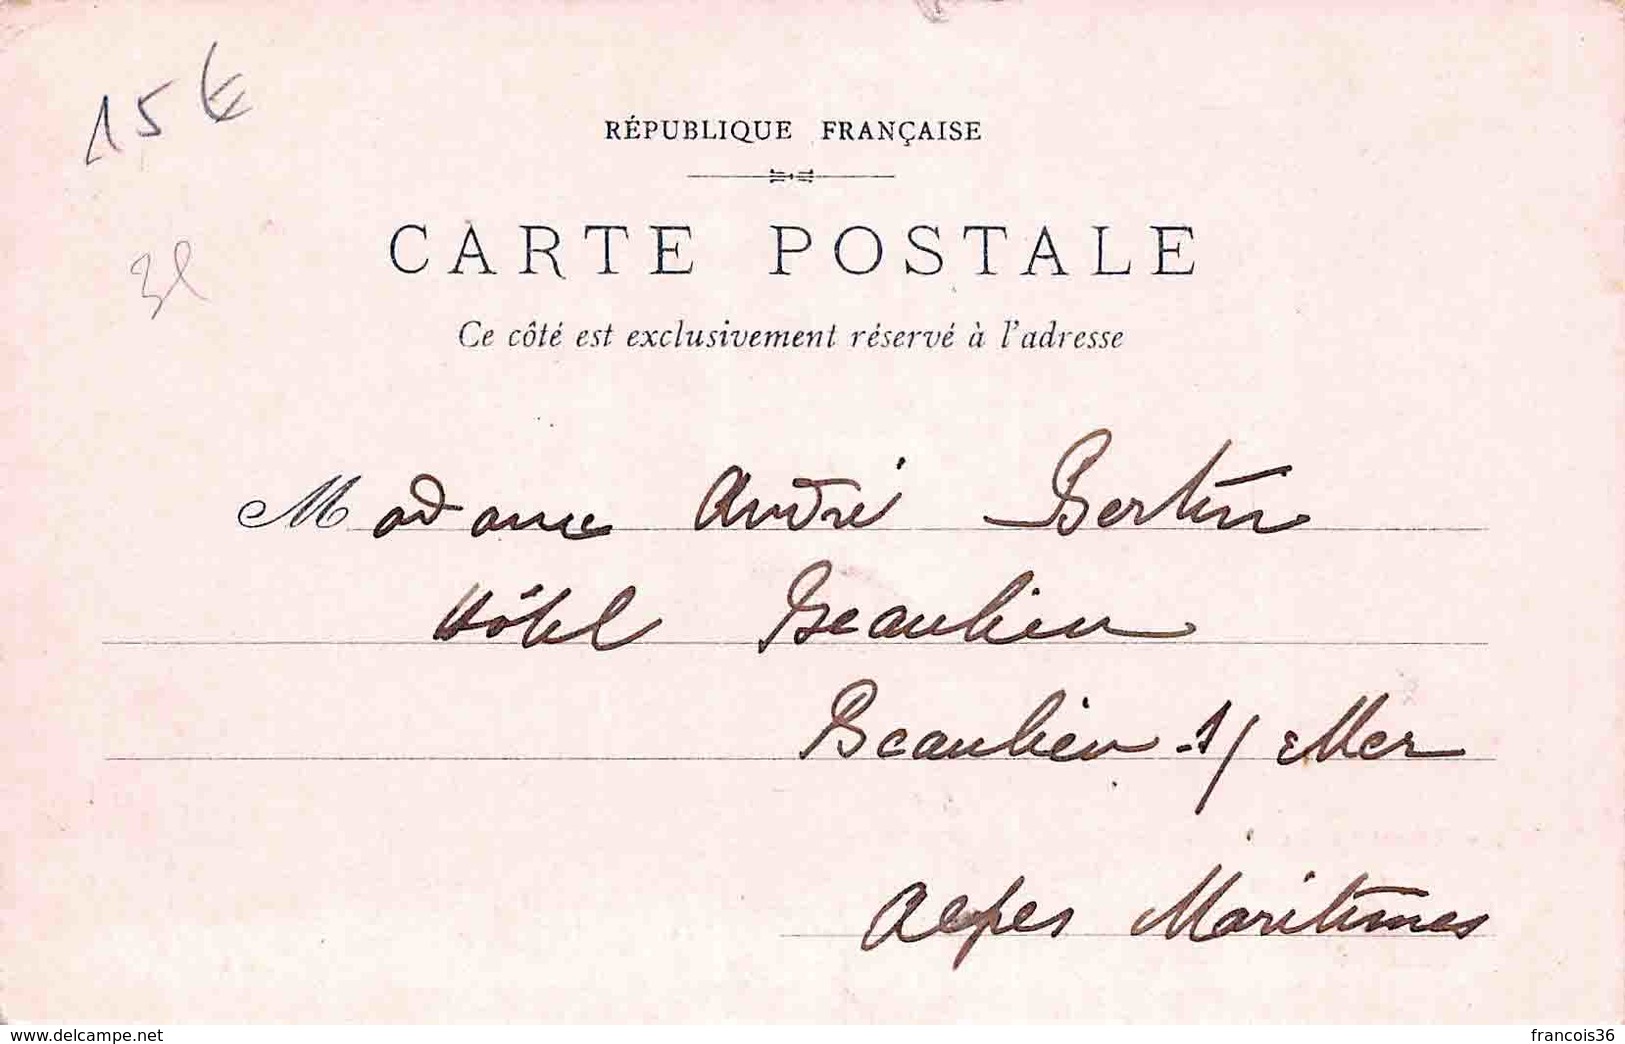 15€
RÉPUBLIQUE FRANÇAISE
CARTE POSTALE
Ce côté est exclusivement réservé à l'adresse
Madame André Bertin
Hôtel Beaulieu
Beaulieu s/ Mer
Alpes Maritimes
www.delcampe.net
francois36